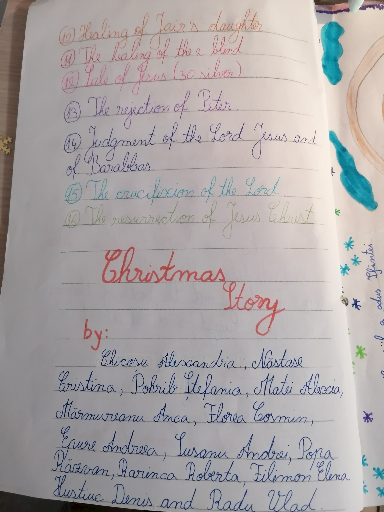 10 Healing of Jair's daughter
11 The healing of the 2 blind
12 Sale of Jesus (30 silver)
13 The rejection of Peter.
14 Judgment of the Lord Jesus and
of Barabbas
15 The crucifixion of the Lord
16 The resurrection of Jesus Christ
Christmas
Story
by:
Chicosu Alexandra, Năstase
Cristina, Ștefania, Matei
Mărmureanu Anca, Florea Cosmin,
Epure Andreea, Susanu Andrei, Popa
Răzvan, Barinca Roberta, Filimon Elena
Denis and Radu Vlad.